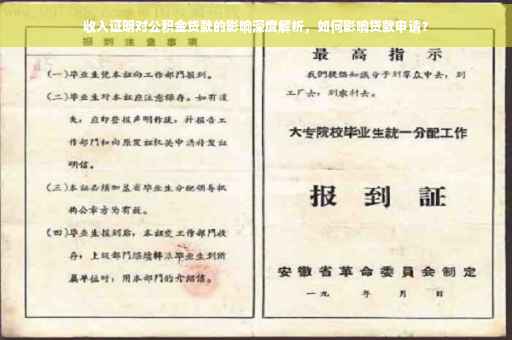 收入证明对公积金贷款的影响深度解析，如何影响贷款申请？
报到注意事项
(一)毕业生凭本证向工作部门报到。
(二)毕业生对本证应注意保存。如有遗
失，应即登报声明作废，并报告工
作部门和向原发证机关申请补发证
明信。
(三)本证必须加盖省毕业生分配领导机
构公章方为有效。
(四)毕业生报到后，本证交工作部门收
存，上级部门
毕业生到所
属单位时，用本部门的介绍信。
最高指示
我们提倡知识分子到群众中去，到
工厂去，到农村去。
大专院校毕业生统一分配工作
报到证
安徽省革命委员会制定
一九 年 月 日